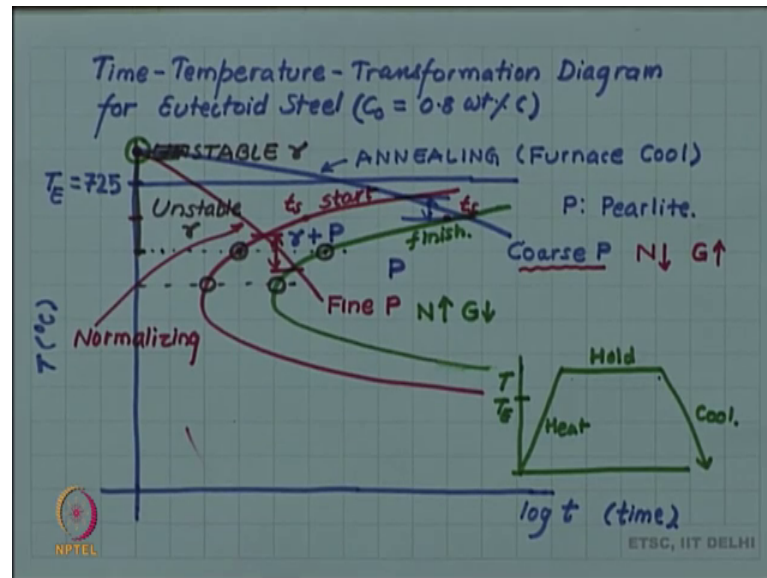 Time-Temperature-Transformation Diagram
for Eutectoid Steel (C₀ = 0.8 wt% C)
UNSTABLE γ
ANNEALING (Furnace Cool)
T_E = 725
Unstable
γ
t_s start
t_f
P: Pearlite.
γ+P
finish.
P
Coarse P N↓ G↑
Fine P N↑ G↓
Normalizing
T(°C)
T
T_E
Hold
Heat
Cool.
log t (time)
NPTEL
ETSC, IIT DELHI